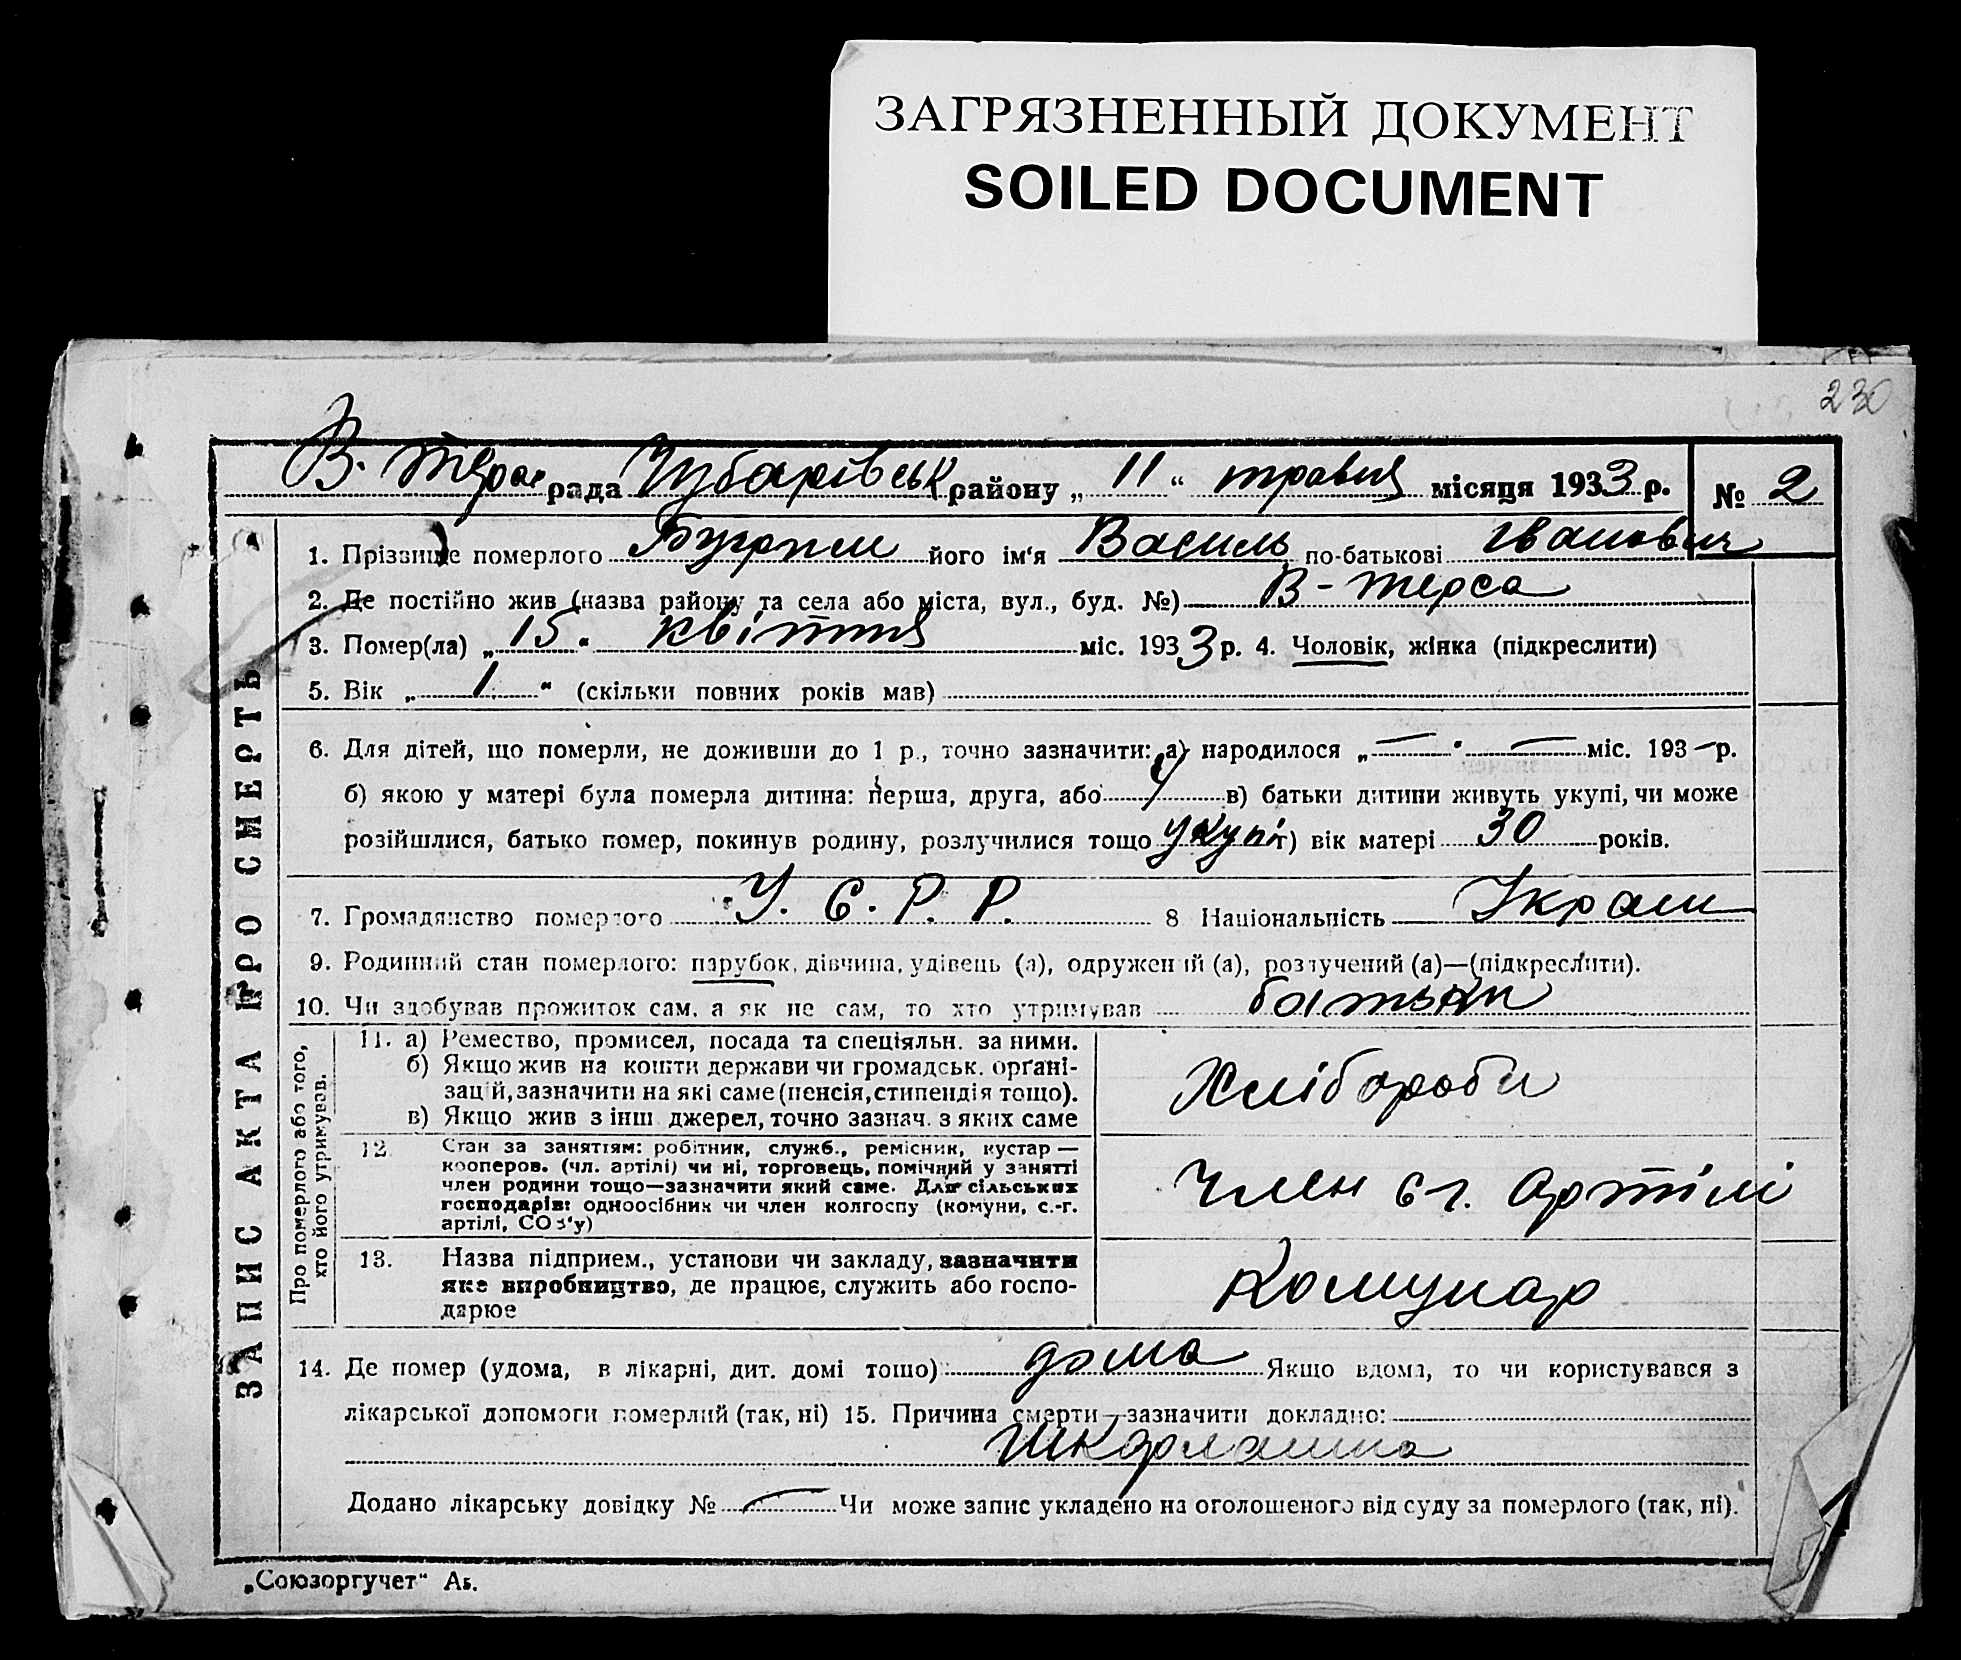 ЗАГРЯЗНЕННЫЙ ДОКУМЕНТ
SOILED DOCUMENT
230
В. Терсян рада Чубарівськ району „ 11 “ травня місяця 1933 р. № 2
ЗАПИС АКТА ПРО СМЕРТЬ
1. Прізвище померлого його ім'я Василь по-батькові Іванович
2. Де постійно жив (назва району та села або міста, вул., буд. №) В-Терса
3. Помер(ла) „ 15 “ квітня міс. 1933 р. 4. Чоловік, жінка (підкреслити)
5. Вік „ 1 “ (скільки повних років мав)
6. Для дітей, що померли, не доживши до 1 р., точно зазначити: а) народилося „ — “ — міс. 193 — р.
б) якою у матері була померла дитина: перша, друга, або в) батьки дитини живуть укупі, чи може
розійшлися, батько помер, покинув родину, розлучилися тощо укупі г) вік матері 30 років.
7. Громадянство померлого У. С. Р. Р. 8 Національність Україн
9. Родинний стан померлого: парубок, дівчина, удівець (а), одружений (а), розлучений (а)—(підкреслити).
10. Чи здобував прожиток сам, а як не сам, то хто утримував батьки
Про померлого або того,
хто його утримував.
11. а) Ремество, промисел, посада та спеціяльн. за ними.
б) Якщо жив на кошти держави чи громадськ. орґані-
зацій, зазначити на які саме (пенсія, стипендія тощо).
в) Якщо жив з інш. джерел, точно зазнач. з яких саме
Хлібороби
12. Стан за заняттям: робітник, служб., ремісник, кустар —
кооперов. (чл. артілі) чи ні, торговець, помічний у занятті
член родини тощо—зазначити який саме. Для сільських
господарів: одноосібник чи член колгоспу (комуни, с.-г.
артілі, СОЗ'у)
Член сг. Артілі
13. Назва підприєм., установи чи закладу, зазначити
яке виробництво, де працює, служить або госпо-
дарює
Комунар
14. Де помер (удома, в лікарні, дит. домі тощо) дома Якщо вдома, то чи користувався з
лікарської допомоги померлий (так, ні) 15. Причина смерти—зазначити докладно:
Шкарлатина
Додано лікарську довідку № — Чи може запис укладено на оголошеного від суду за померлого (так, ні).
„Союзоргучет“